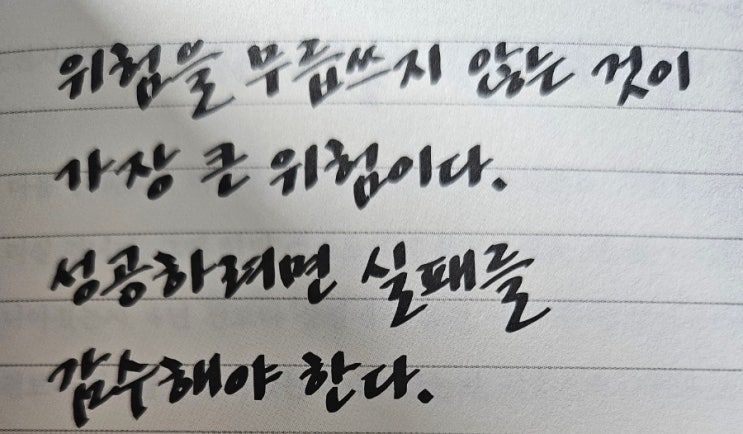 위험을 무릅쓰지 않는 것이
가장 큰 위험이다.
성공하려면 실패를
감수해야 한다.